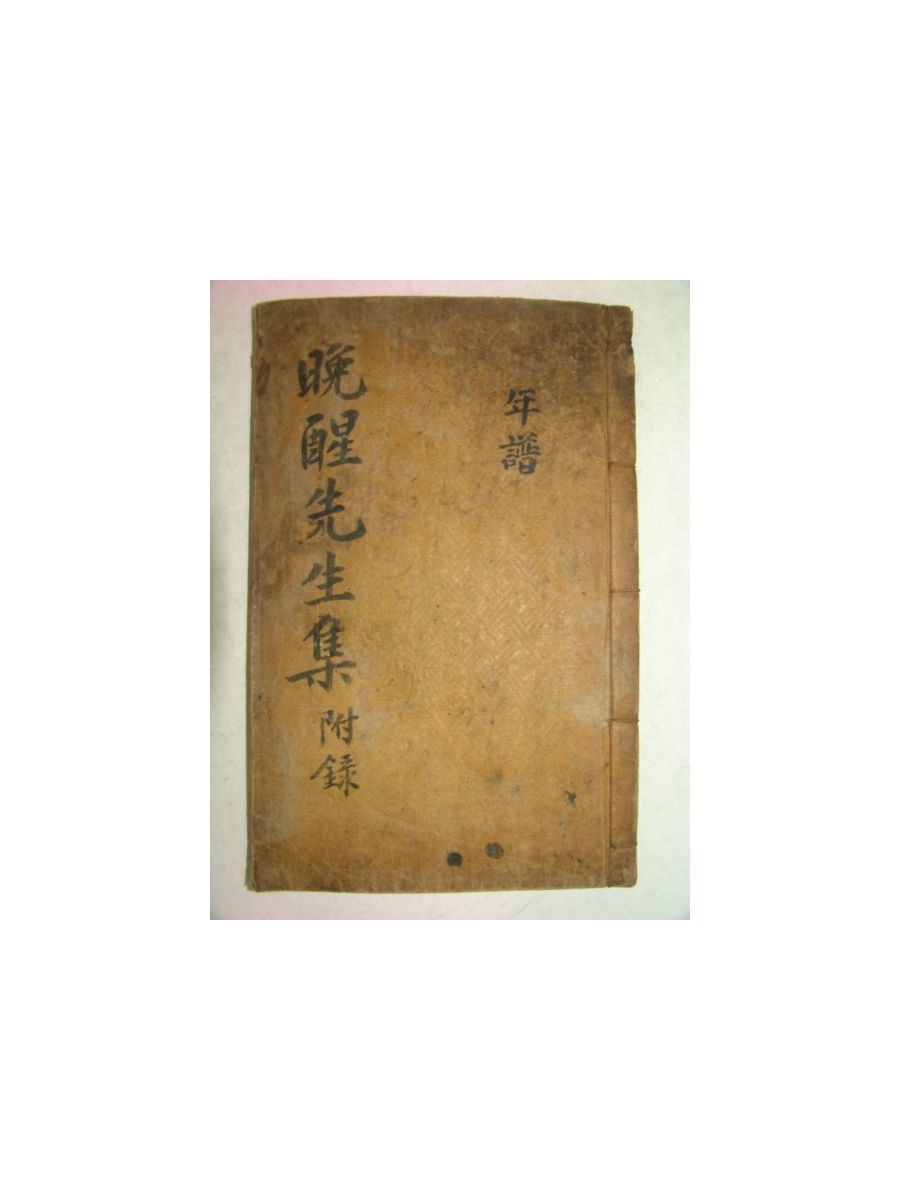 年譜
晩醒先生集 附錄